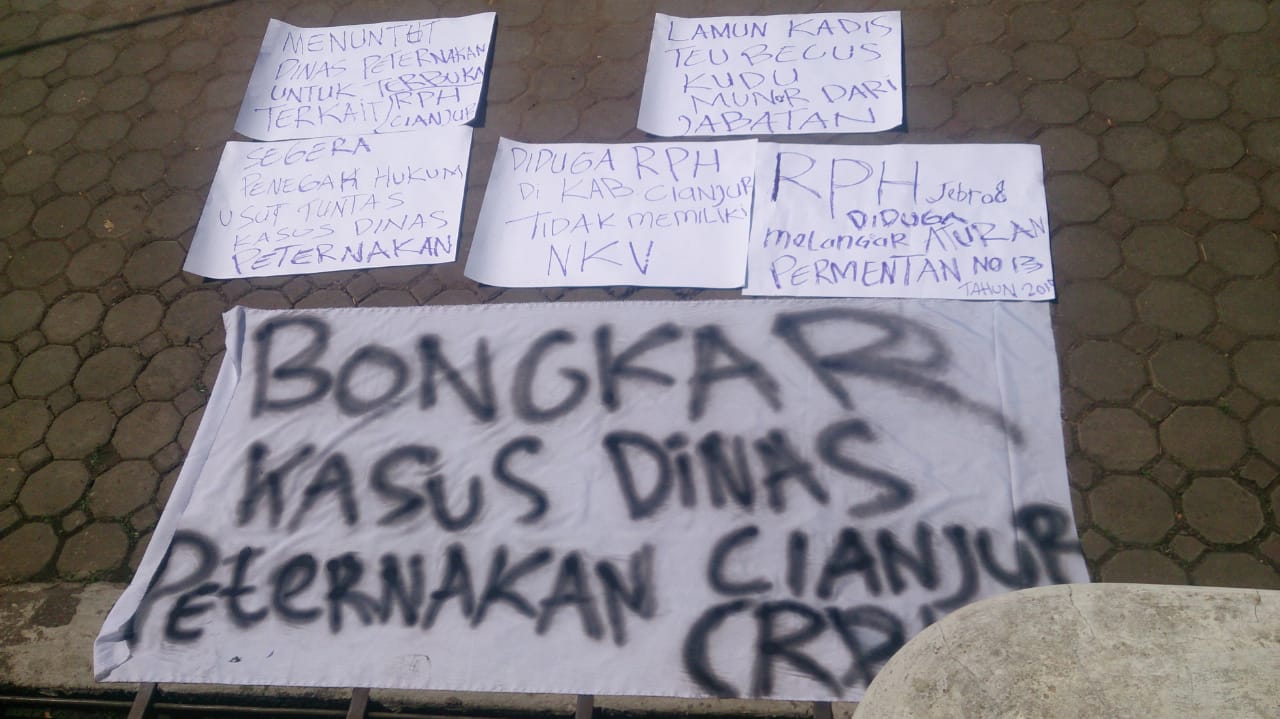 MENUNTUT
DINAS PETERNAKAN
UNTUK TERBUKA
TERKAIT RPH
CIANJUR
LAMUN KADIS
TEU BECUS
KUDU
MUNDR DARI
JABATAN
SEGERA
PENEGAK HUKUM
USUT TUNTAS
KASUS DINAS
PETERNAKAN
DIDUGA RPH
Di KAB CIANJUR
TIDAK MEMILIKI
NKV
RPH Jebrod
DIDUGA
MELANGAR ATURAN
PERMENTAN NO 13
TAHUN
BONGKAR
KASUS DINAS
PETERNAKAN CIANJUR